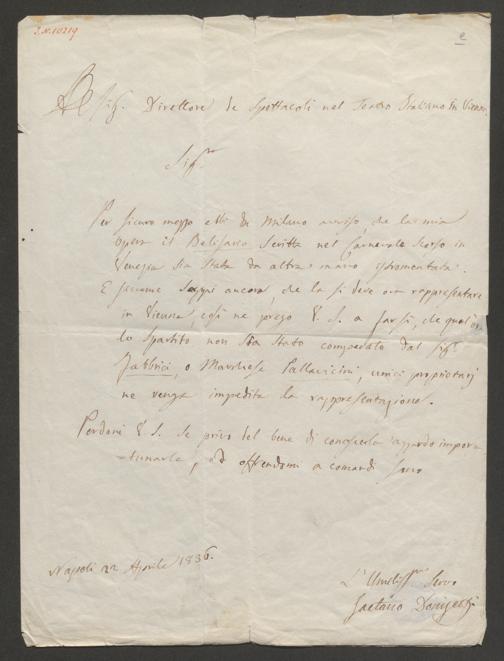 J.N. 10219
Al Sig. Direttore de Spettacoli nel Teatro Italiano in Vienna.
Sig.re
Per sicuro mezzo ebbi da Milano avviso, che la mia
opera il Belisario scritta nel Carnevale scorso in
Venezia sia stata da altra mano istromentata.
E siccome seppi ancora, che la si deve ora rappresentare
in Vienna, così ne prego V. S. a far sì, che qualora
lo spartito non sia stato comperato dal Sig.r
Fabbrici, o Marchese Pallavicini, unici proprietarj
ne venga impedita la rappresentazione.
Perdoni V. S. se privo del bene di conoscerla azzardo impor
tunarla, ed offrendomi a comandi sono
Napoli 22 Aprile 1836.
L'Umiliss.mo Servo
Gaetano Donizetti